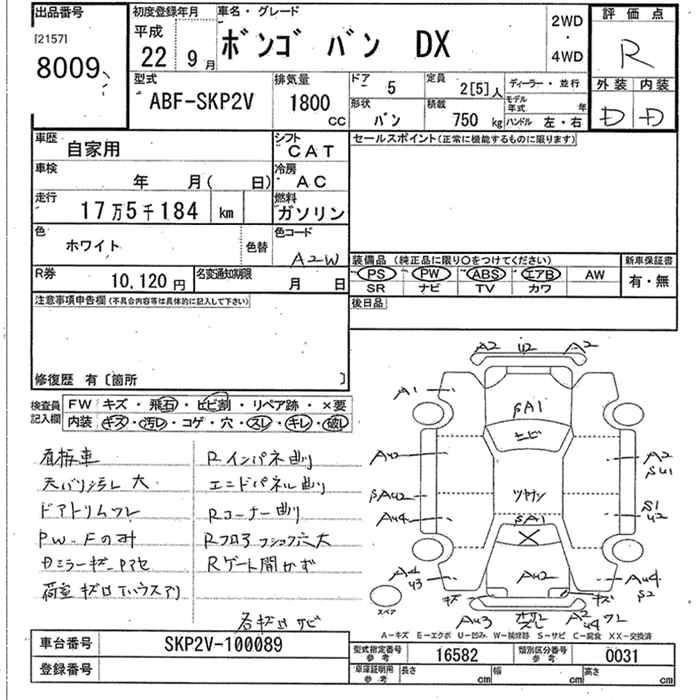 出品番号 初度登録年月 車名・グレード 評価点
[2157] 平成 2WD
8009 22 9月 ボンゴ バン DX ・ R
4WD
型式 排気量 ドア 5 定員 2[5]人 ディーラー・並行 外装 内装
ABF-SKP2V 1800 cc 形状 バン 積載 750 kg モデル年式 年 D D
ハンドル 左・右
車歴 自家用 シフト CAT セールスポイント(正常に機能するものに限ります)
車検 年 月( 日) 冷房 AC
走行 17万5千184 km 燃料 ガソリン
色 ホワイト 色替 色コード A2W
装備品 (純正品に限り○をつけてください) 新車保証書
R券 10,120円 名変通知期限 月 日 PS PW ABS エアB AW 有・無
SR ナビ TV カワ
注意事項申告欄(不具合内容等は具体的に記入して下さい) 後日品
修復歴 有〔箇所 〕
検査員記入欄 FW キズ・飛石・ヒビ割・リペア跡・×要
内装 キズ・汚レ・コゲ・穴・スレ・キレ・破レ
看板車 Rインパネ曲り
天バリ汚レ大 エンドパネル曲り
ドアトリムワレ Rコーナー曲り
PW-Fのみ
Dミラーキズ Rゲート開かず
各キズサビ
A2 U2 A2
A1
SA1
ヒビ
A2
SU1
S1
U2
AU4
SA1
A4
U3
AU2
AU4
S2
キズ キズ
スペア AU3 A2
U4
A-キズ E-エクボ U-凹み W-補修跡 S-サビ C-腐食 XX-交換済
車台番号 SKP2V-100089 型式指定番号 参考 16582 類別区分番号 参考 0031
登録番号 車庫証明用 参考 長さ cm 幅 cm 高さ cm